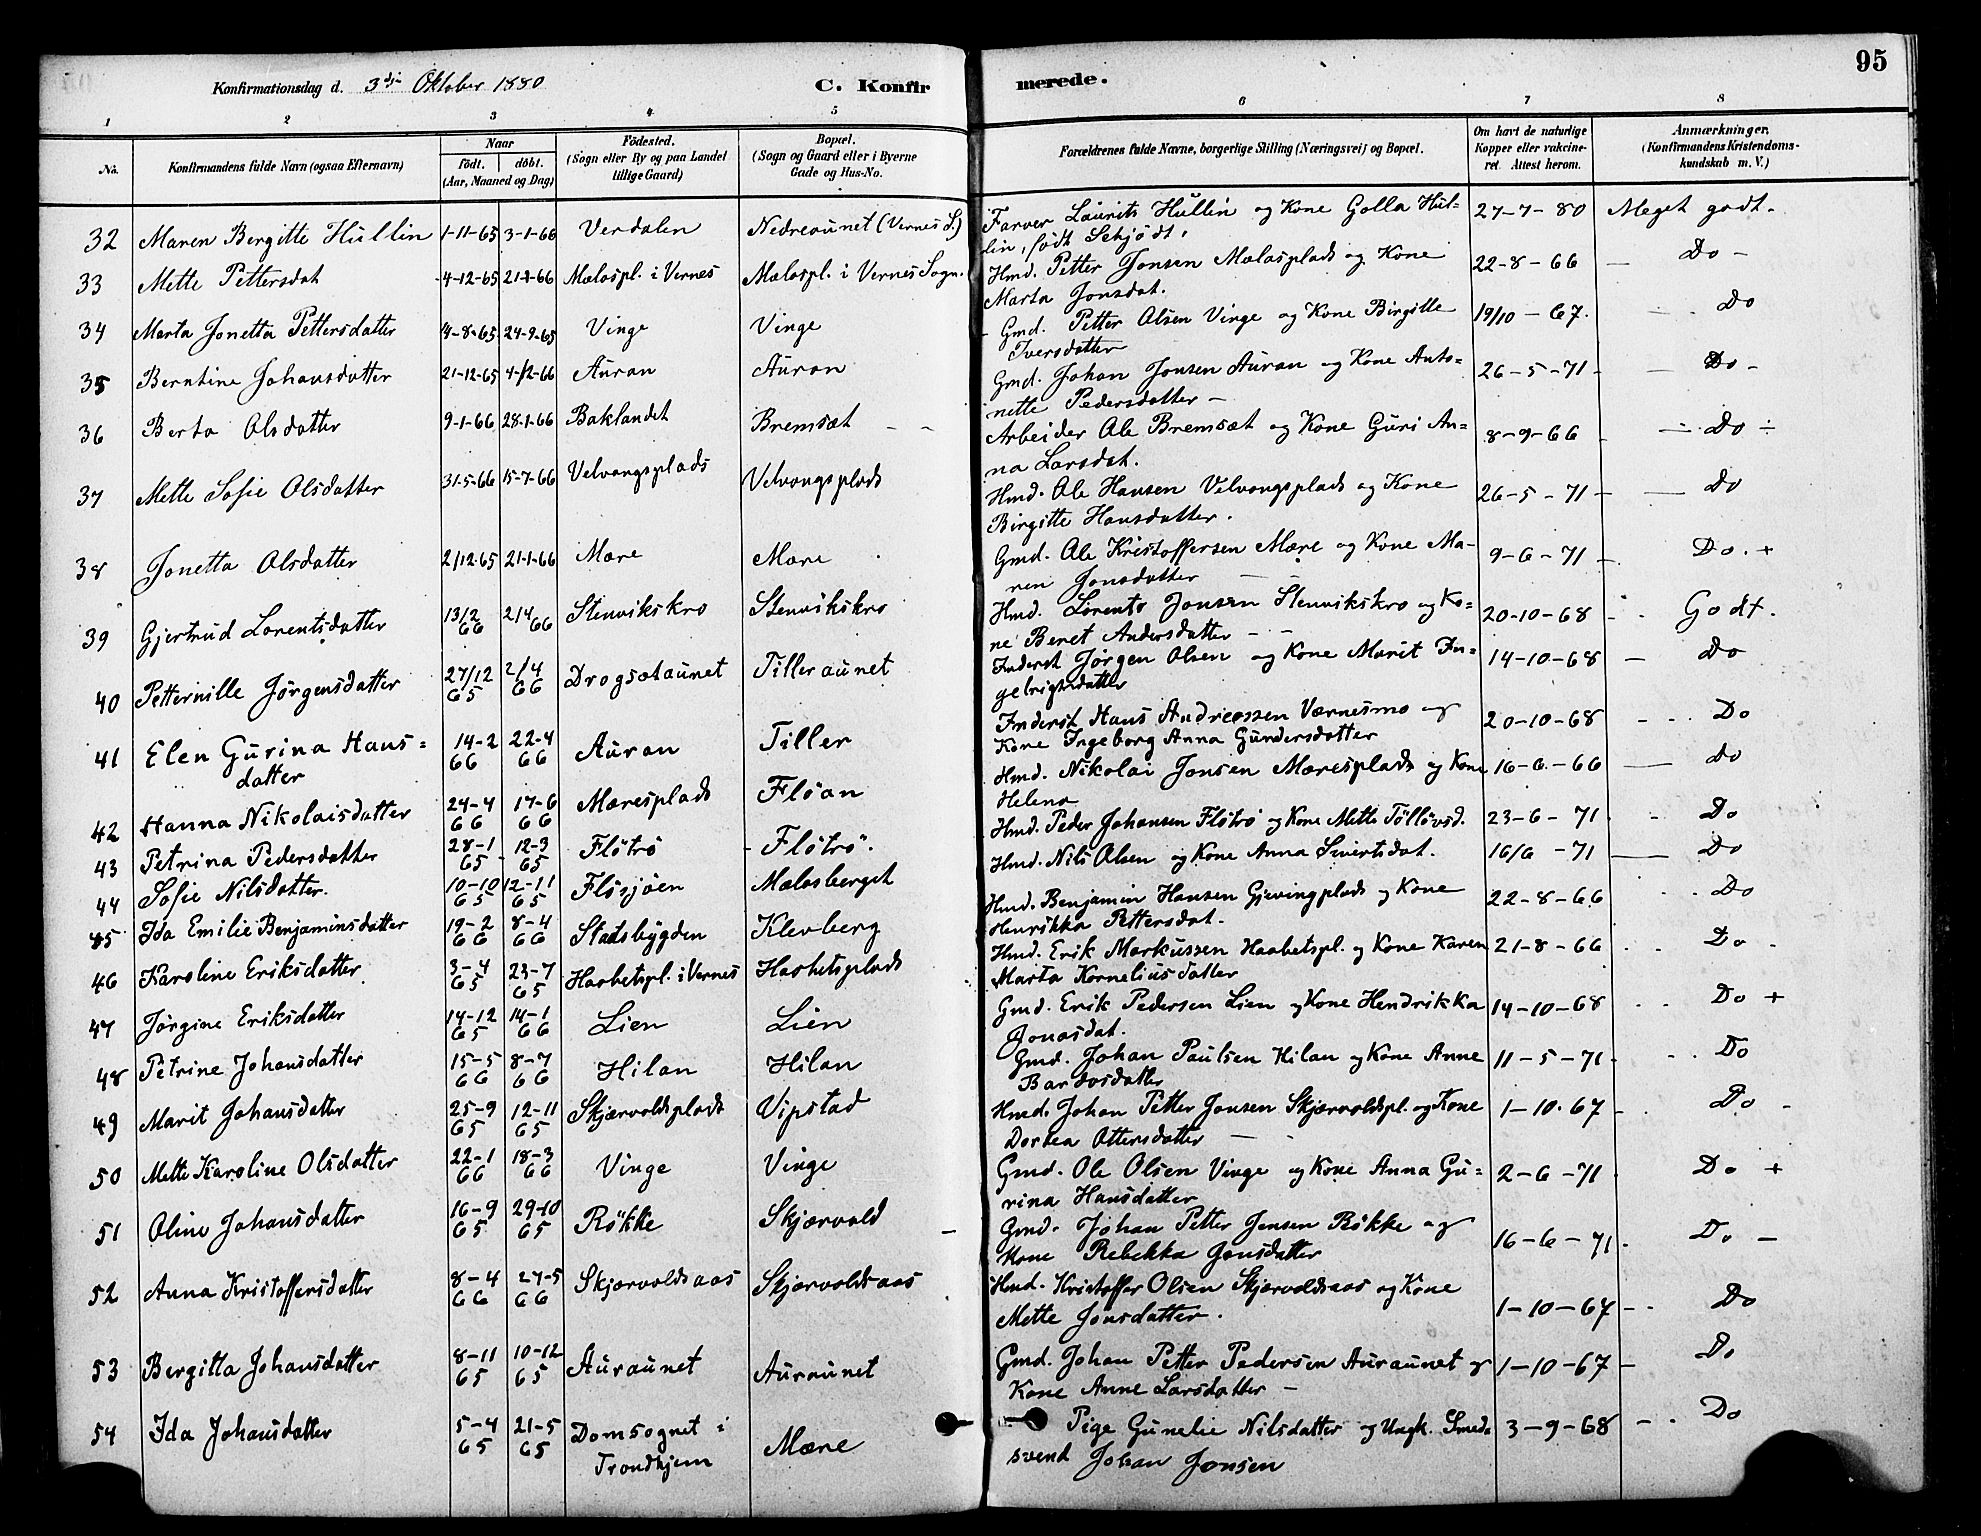 95
Konfirmationsdag d. 3die Oktober 1880
C. Konfirmerede.
1 2 3 4 5 6 7 8
No.
Konfirmandens fulde Navn (ogsaa Efternavn)
Naar
födt. döbt.
(Aar, Maaned og Dag)
Födested.
(Sogn eller By og paa Landet
tillige Gaard)
Bopæl.
(Sogn og Gaard eller i Byerne
Gade og Hus-No.
Forældrenes fulde Navne, borgerlige Stilling (Næringsvei) og Bopæl.
Om havt de naturlige
Kopper eller vakcine-
ret. Attest herom.
Anmærkninger.
(Konfirmandens Kristendoms-
kundskab m. V.)
32 Maren Bergitte Hullin 1-11-65 3-1-66 Verdalen Nedreaunet (Vernes S.) Farver Laurits Hullin og Kone Golla Hul- 27-7-80 Meget godt.
lin, født Schjödt.
33 Mette Pettersdat 4-12-65 21-1-66 Mælaspl. i Vernes Mælaspl. i Vernes Sogn. Hmd. Petter Jonsen Mælasplads og Kone 22-8-66 — Do —
Marta Jonsdat.
34 Marta Jonetta Pettersdatter 4-8-65 24-9-65 Vinge Vinge Gmd. Petter Olsen Vinge og Kone Birgitte 19/10-67. Do
Iversdatter
35 Berntine Johansdatter 21-12-65 4-/2-66 Auran Auran Gmd. Johan Jonsen Auran og Kone Anto= 26-5-71 — Do -
nette Pedersdatter —
36 Berta Olsdatter 9-1-66 28-1-66 Baklandet Bremsæt Arbeider Ole Bremsæt og Kone Guri An= 8-9-66 Do
na Larsdat.
37 Mette Sofie Olsdatter 31-5-66 15-7-66 Velvangsplads Velvangsplads Hmd. Ole Hansen Velvangsplads og Kone 26-5-71 — Do
Birgitte Hansdatter.
38 Jonetta Olsdatter 2/12-65 21-1-66 Mære Mære Gmd. Ole Kristoffersen Mære og Kone Ma- 9-6-71 Do. +
ren Jonsdatter —
39 Gjertrud Lorentsdatter 13/2 66 2/4 66 Stenvikskro Stenvikskro Hmd. Lorents Jonsen Stenvikskro og Ko- 20-10-68 Godt.
ne Beret Andersdatter - -
40 Petternille Jørgensdatter 27/12 65 2/4 66 Drogsetaunet Tilleraunet Inderst Jørgen Olsen og Kone Marit In= 14-10-68 — Do
gebrigtsdatter
41 Elen Gurina Hans= 14-2 66 22-4 66 Auran Tiller Inderst Hans Andreassen Værnesmo og 20-10-68 Do
datter Kone Ingeborg Anna Gundersdatter
42 Hanna Nikolaisdatter 24-4 66 17-6 66 Mæresplads Floan Hmd. Nikolai Jonsen Mæresplads og Kone 16-6-66 — Do
Helena
43 Petrina Pedersdatter 28-1 65 12-3 65 Flötrö Flötrö. Hmd. Peder Johansen Flötrö og Kone Mette Töllövsd. 23-6-71 Do
44 Sofie Nilsdatter. 10-10 65 12-11 65 Flösjöen Mælasberget Hmd. Nils Olsen og Kone Anna Sivertsdat. 16/6-71 — Do
85 Ida Emilie Benjaminsdatter 19-2 66 8-4 66 Stadsbygden Klevberg Hmd. Benjamin Hansen Gjevingplads og Kone 22-8-66 Do
Henrikka Pettersdat-
46 Karoline Eriksdatter 3-4 65 23-7 65 Haabetspl. i Vernes Haabetsplads Hmd. Erik Markussen Haabetspl. og Kone Karen 21-8-66 Do
Marta Korneliusdatter
47 Jørgine Eriksdatter 14-12 65 14-1 66 Lien Lien Gmd. Erik Pedersen Lien og Kone Hendrikka 14-10-68 Do +
Jonasdat.
48 Petrine Johansdatter 15-5 66 8-7 66 Hilan Hilan Gmd. Johan Paulsen Hilan og Kone Anne 11-5-71 Do
Bardosdatter
49 Marit Johansdatter 25-9 65 12-11 65 Skjærvoldsplads Vipstad Hmd. Johan Petter Jonsen Skjærvoldspl. og Kone 1-10-67 Do
Dortea Ottersdatter —
50 Mette Karoline Olsdatter 22-1 66 18-3 66 Vinge Vinge Gmd. Ole Olsen Vinge og Kone Anna Gu= 2-6-71 Do +
rina Hansdatter
51 Oline Johansdatter 16-9 65 29-10 65 Røkke Skjærvold Gmd. Johan Petter Jensen Røkke og 16-6-71 Do —
Kone Rebekka Jonsdatter
52 Anna Kristoffersdatter 8-4 66 27-5 66 Skjærvoldsaas Skjærvoldsaas Hmd. Kristoffer Olsen Skjærvoldsaas og Kone 1-10-67 Do
Mette Jonsdatter.
53 Bergitta Johansdatter 8-11 65 10-12 65 Auraunet Auraunet Gmd. Johan Petter Pedersen Auraunet og 1-10-67 — Do
Kone Anne Larsdatter —
54 Ida Johansdatter 5-4 65 21-5 65 Domsognet i Mære Pige Gunelie Nilsdatter og Ungk. Smede 3-9-68 Do
Trondhjem svend Johan Jonsen